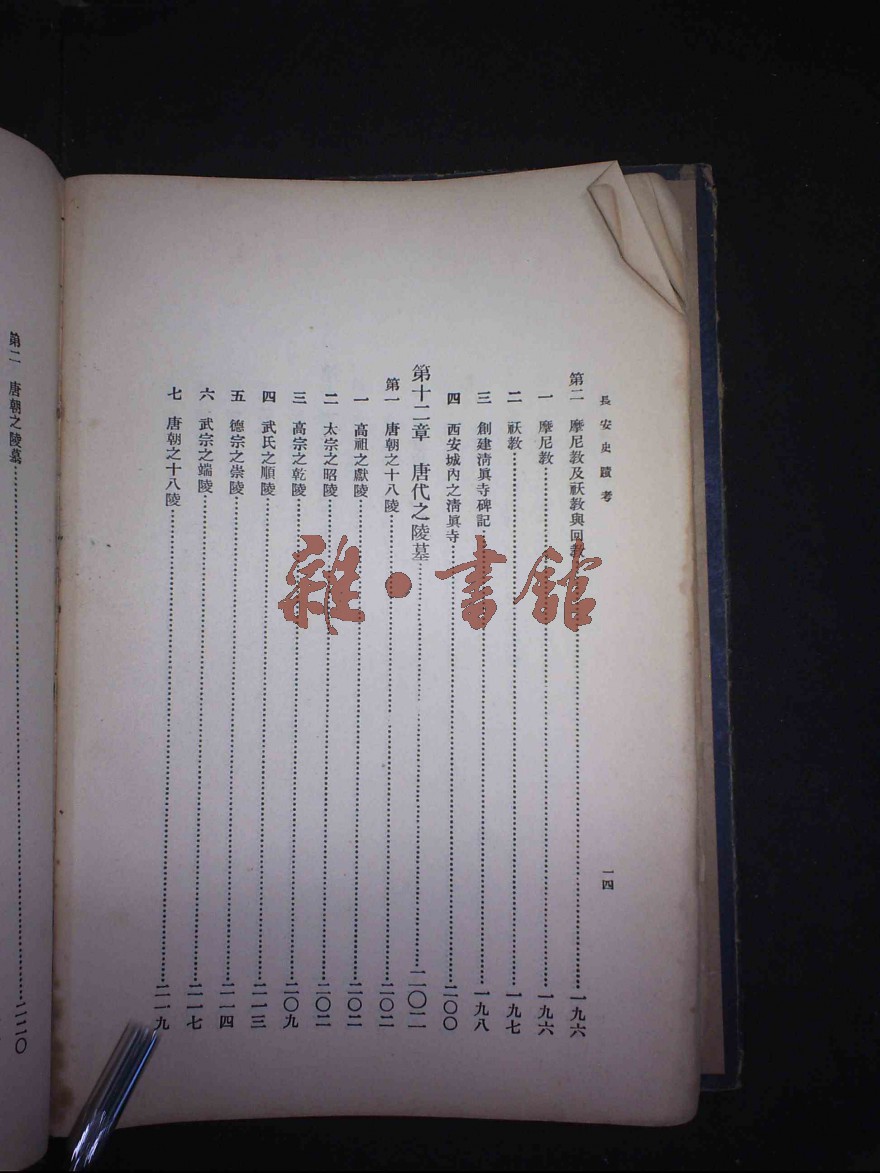 長安史蹟考
一四
第二 摩尼教及祆教與回教……一九六
一 摩尼教……一九六
二 祆教……一九七
三 創建清眞寺碑記……一九八
四 西安城內之清眞寺……二〇〇
第十二章 唐代之陵墓……二〇二
第一 唐朝之十八陵……二〇二
一 高祖之獻陵……二〇二
二 太宗之昭陵……二〇二
三 高宗之乾陵……二〇九
四 武氏之順陵……二一三
五 德宗之崇陵……二一四
六 武宗之端陵……二一七
七 唐朝之十八陵……二一九
第二 唐朝之陵墓……二二〇
雜·書館